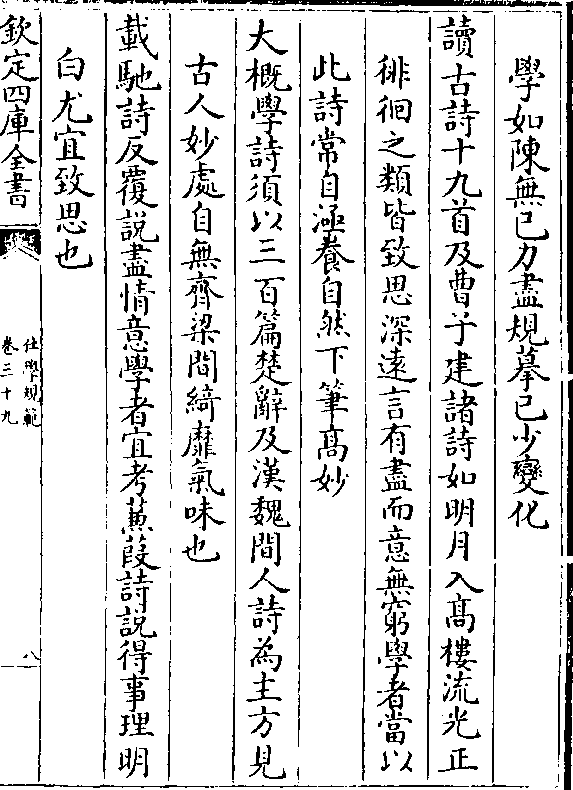 學如陳無已力盡規摹已少變化
讀古詩十九首及曹子建諸詩如明月入髙樓流光正
徘徊之類皆致思深逺言有盡而意無窮學者當以
此詩常自涵養自然下筆髙妙
大概學詩須以三百篇楚辭及漢魏間人詩為主方見
古人妙處自無齊梁間綺靡氣味也
載馳詩反覆說盡情意學者宜考蒹葭詩説得事理明
白尤宜致思也
欽定四庫全書
仕學規範
卷三十九
八